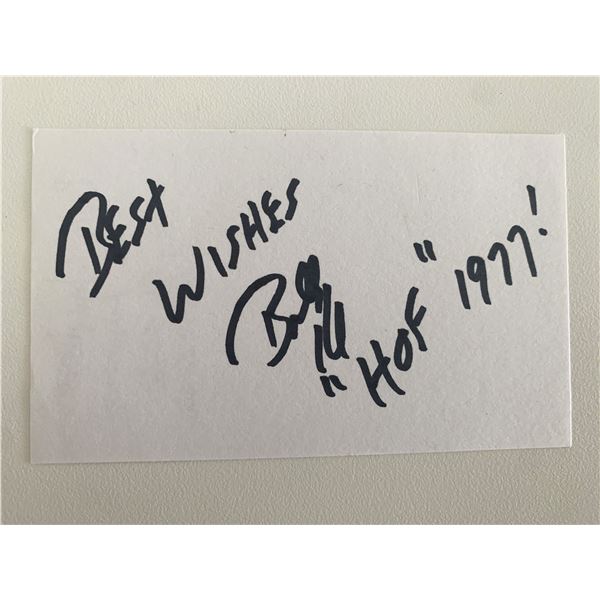 BEST WISHES
"HOF" 1977!